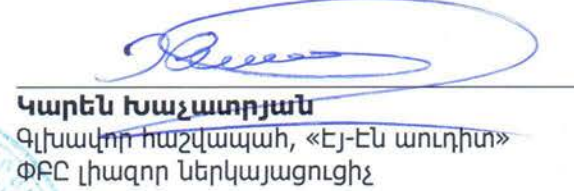 Կարեն Խաչատրյան
Գլխավոր հաշվապահ, «Էյ-Էն աուդիտ»
ՓԲԸ լիազոր ներկայացուցիչ